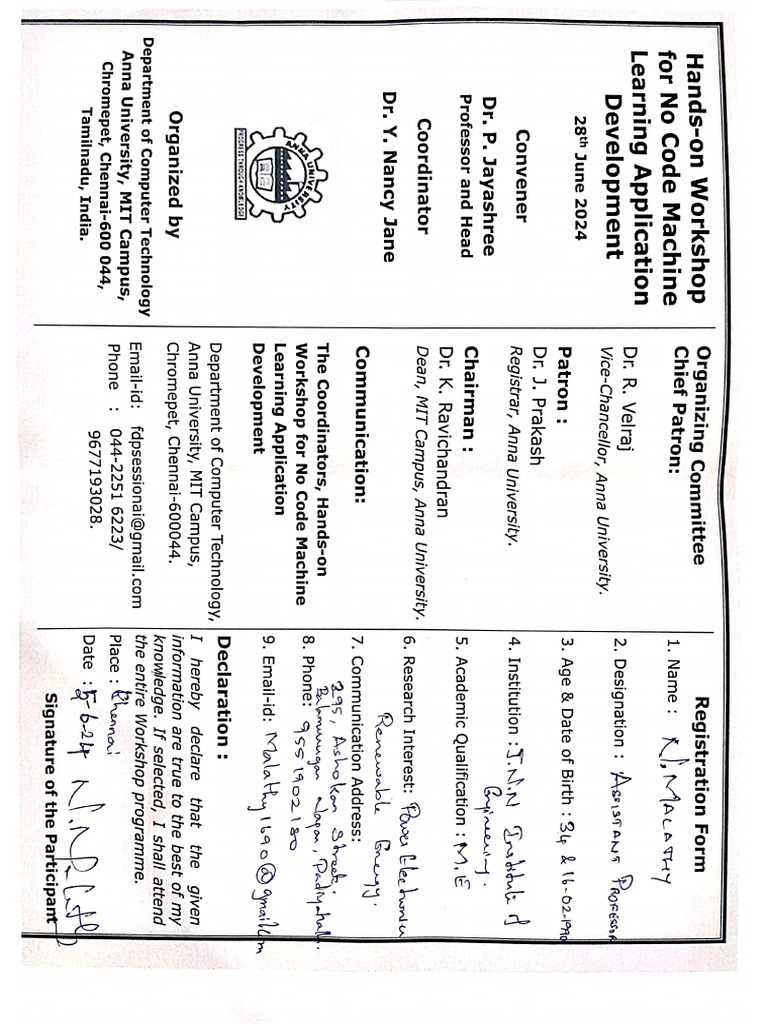 Hands-on Workshop
for No Code Machine
Learning Application
Development
28th June 2024
Convener
Dr. P. Jayashree
Professor and Head
Coordinator
Dr. Y. Nancy Jane
ANNA UNIVERSITY
PROGRESS THROUGH KNOWLEDGE
Organized by
Department of Computer Technology
Anna University, MIT Campus,
Chromepet, Chennai-600 044,
Tamilnadu, India.
Organizing Committee
Chief Patron:
Dr. R. Velraj
Vice-Chancellor, Anna University.
Patron :
Dr. J. Prakash
Registrar, Anna University.
Chairman :
Dr. K. Ravichandran
Dean, MIT Campus, Anna University.
Communication:
The Coordinators, Hands-on
Workshop for No Code Machine
Learning Application
Development
Department of Computer Technology,
Anna University, MIT Campus,
Chromepet, Chennai-600044.
Email-id: fdpsessionai@gmail.com
Phone : 044-2251 6223/
9677193028.
Registration Form
1. Name : N. MALATHY
2. Designation : ASSISTANT PROFESSOR
3. Age & Date of Birth : 34 & 16-02-1990
4. Institution : J.N.N Institute of
Engineering.
5. Academic Qualification : M.E
6. Research Interest: Power Electronics
Renewable Energy.
7. Communication Address:
295, Ashokan Street,
Nagar,
8. Phone: 9551902180
9. Email-id: Malathy1690@gmail.com
Declaration :
I hereby declare that the given
information are true to the best of my
knowledge. If selected, I shall attend
the entire Workshop programme.
Place : Chennai
Date : 5-6-24
Signature of the Participant